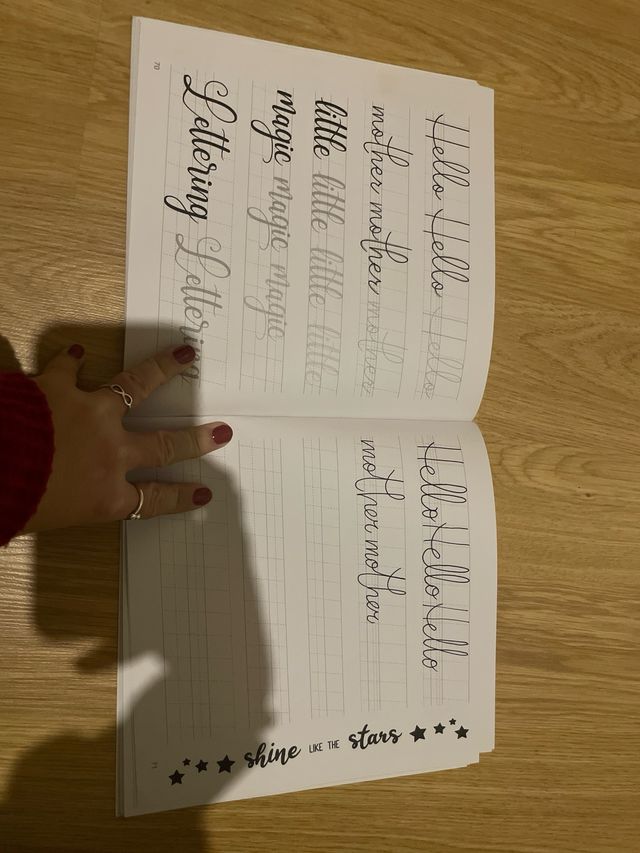 Hello Hello Hello
mother mother mother
little little little little
magic magic magic
Lettering Lettering
70
Hello Hello Hello
mother mother
shine LIKE THE stars
71